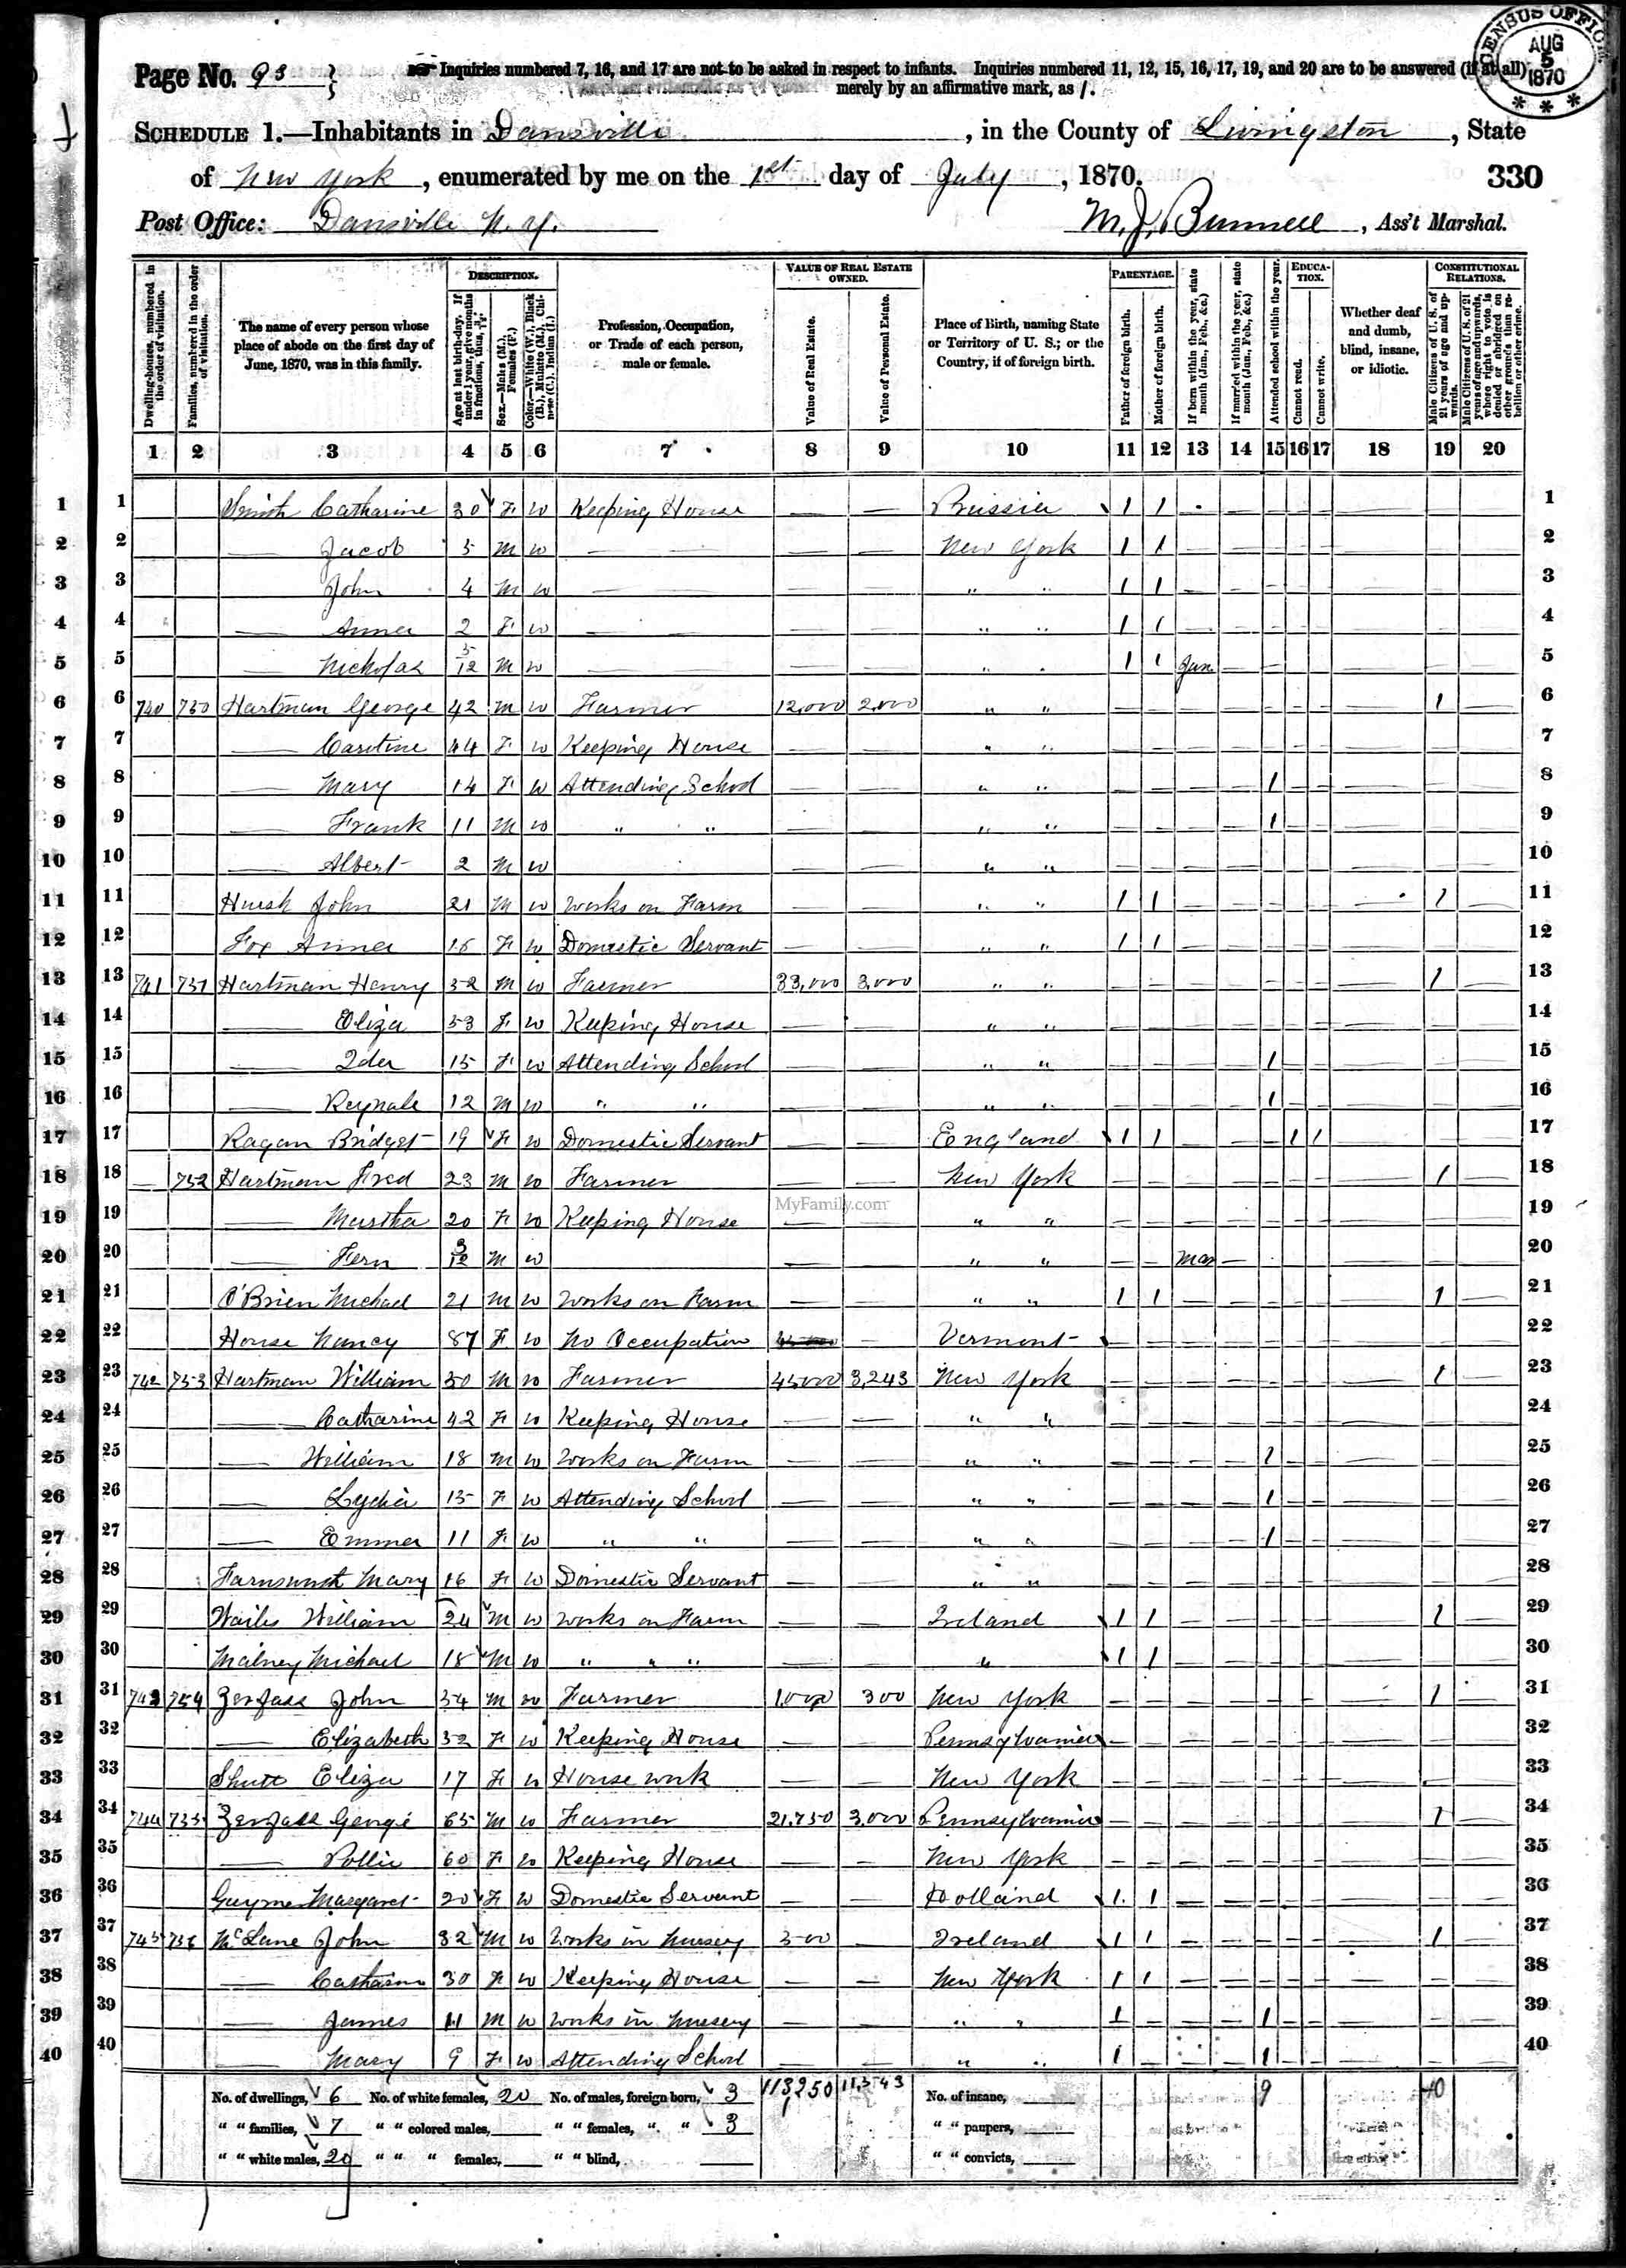 CENSUS OFFICE
AUG
5
1870
* * *
Page No. 93
Inquiries numbered 7, 16, and 17 are not to be asked in respect to infants. Inquiries numbered 11, 12, 15, 16, 17, 19, and 20 are to be answered (if at all)
merely by an affirmative mark, as /.
SCHEDULE 1.—Inhabitants in Dansville, in the County of Livingston, State
of New York, enumerated by me on the 1st day of July, 1870.
330
Post Office: Dansville N.Y.
M. J. Bunnell, Ass't Marshal.
Dwelling-houses, numbered in the order of visitation.
Families, numbered in the order of visitation.
The name of every person whose place of abode on the first day of June, 1870, was in this family.
DESCRIPTION.
Age at last birth-day. If under 1 year, give months in fractions, thus, 3/12.
Sex.—Males (M.), Females (F.)
Color.—White (W.), Black (B.), Mulatto (M.), Chinese (C.), Indian (I.)
Profession, Occupation, or Trade of each person, male or female.
VALUE OF REAL ESTATE OWNED.
Value of Real Estate.
Value of Personal Estate.
Place of Birth, naming State or Territory of U. S.; or the Country, if of foreign birth.
PARENTAGE.
Father of foreign birth.
Mother of foreign birth.
If born within the year, state month (Jan., Feb., &c.)
If married within the year, state month (Jan., Feb., &c.)
Attended school within the year.
EDUCATION.
Cannot read.
Cannot write.
Whether deaf and dumb, blind, insane, or idiotic.
CONSTITUTIONAL RELATIONS.
Male Citizens of U. S. of 21 years of age and upwards.
Male Citizens of U. S. of 21 years of age and upwards, where right to vote is denied or abridged on other grounds than rebellion or other crime.
1 2 3 4 5 6 7 8 9 10 11 12 13 14 15 16 17 18 19 20
1 Smith Catharine 30 F W Keeping House — — Prussia 1 1
2 — Jacob 5 M W — — — New York 1 1
3 — John 4 M W — — — " " 1 1
4 — Anna 2 F W — — — " " 1 1
5 — Nicholas 5/12 M W — — — " " 1 1 Jan
6 740 750 Hartman George 42 M W Farmer 12,000 2,000 " " 1
7 — 44 F W Keeping House — — " "
8 — Mary 14 F W Attending School — — " " 1
9 — Frank 11 M W " " — — " " 1
10 — Albert 2 M W — — " "
11 John 21 M W Works on Farm — — " " 1 1 1
12 Fox Anna 16 F W Domestic Servant — — " " 1 1
13 741 751 Hartman Henry 52 M W Farmer 33,000 3,000 " " 1
14 — Eliza 53 F W Keeping House — — " "
15 — Ida 15 F W Attending School — — " " 1
16 — 12 M W " " " " 1
17 Ragan Bridget 19 F W Domestic Servant — — England 1 1 1 1
18 — 752 Hartman Fred 23 M W Farmer — — New York 1
MyFamily.com
19 — Martha 20 F W Keeping House — — " "
20 — Fern 3/12 M W — — " " Mar
21 O'Brien Michael 21 M W Works on Farm — — " " 1 1 1
22 House Nancy 87 F W No Occupation — Vermont
23 742 753 Hartman William 50 M W Farmer 45000 3,243 New York 1
24 — Catharine 42 F W Keeping House — — " "
25 — William 18 M W Works on Farm — — " " 1
26 — Lydia 15 F W Attending School — — " " 1
27 — Emma 11 F W " " " " 1
28 Mary 16 F W Domestic Servant — — " "
29 Wailes William 24 M W Works on Farm — — Ireland 1 1 1
30 Michael 18 M W " " " — — " 1 1
31 743 754 Zerfass John 54 M W Farmer 1,000 300 New York 1
32 — Elizabeth 52 F W Keeping House — — Pennsylvania
33 Shutt Eliza 17 F W House work — — New York
34 744 755 Zerfass George 65 M W Farmer 21,750 3,000 Pennsylvania 1
35 — Pollie 60 F W Keeping House — — New York
36 Margaret 20 F W Domestic Servant — — Holland 1 1
37 745 756 McLane John 32 M W Works in Nursery 500 Ireland 1 1 1
38 — Catharine 30 F W Keeping House — — New York 1 1
39 — James 11 M W Works in Nursery — — " " 1 1
40 — Mary 9 F W Attending School — — " " 1 1
No. of dwellings, 6 No. of white females, 20 No. of males, foreign born, 3 113,250 11,543 No. of insane, 9 10
" " families, 7 " " colored males, " " females, " " 3 " " paupers,
" " white males, 20 " " " females, " " blind, " " convicts,